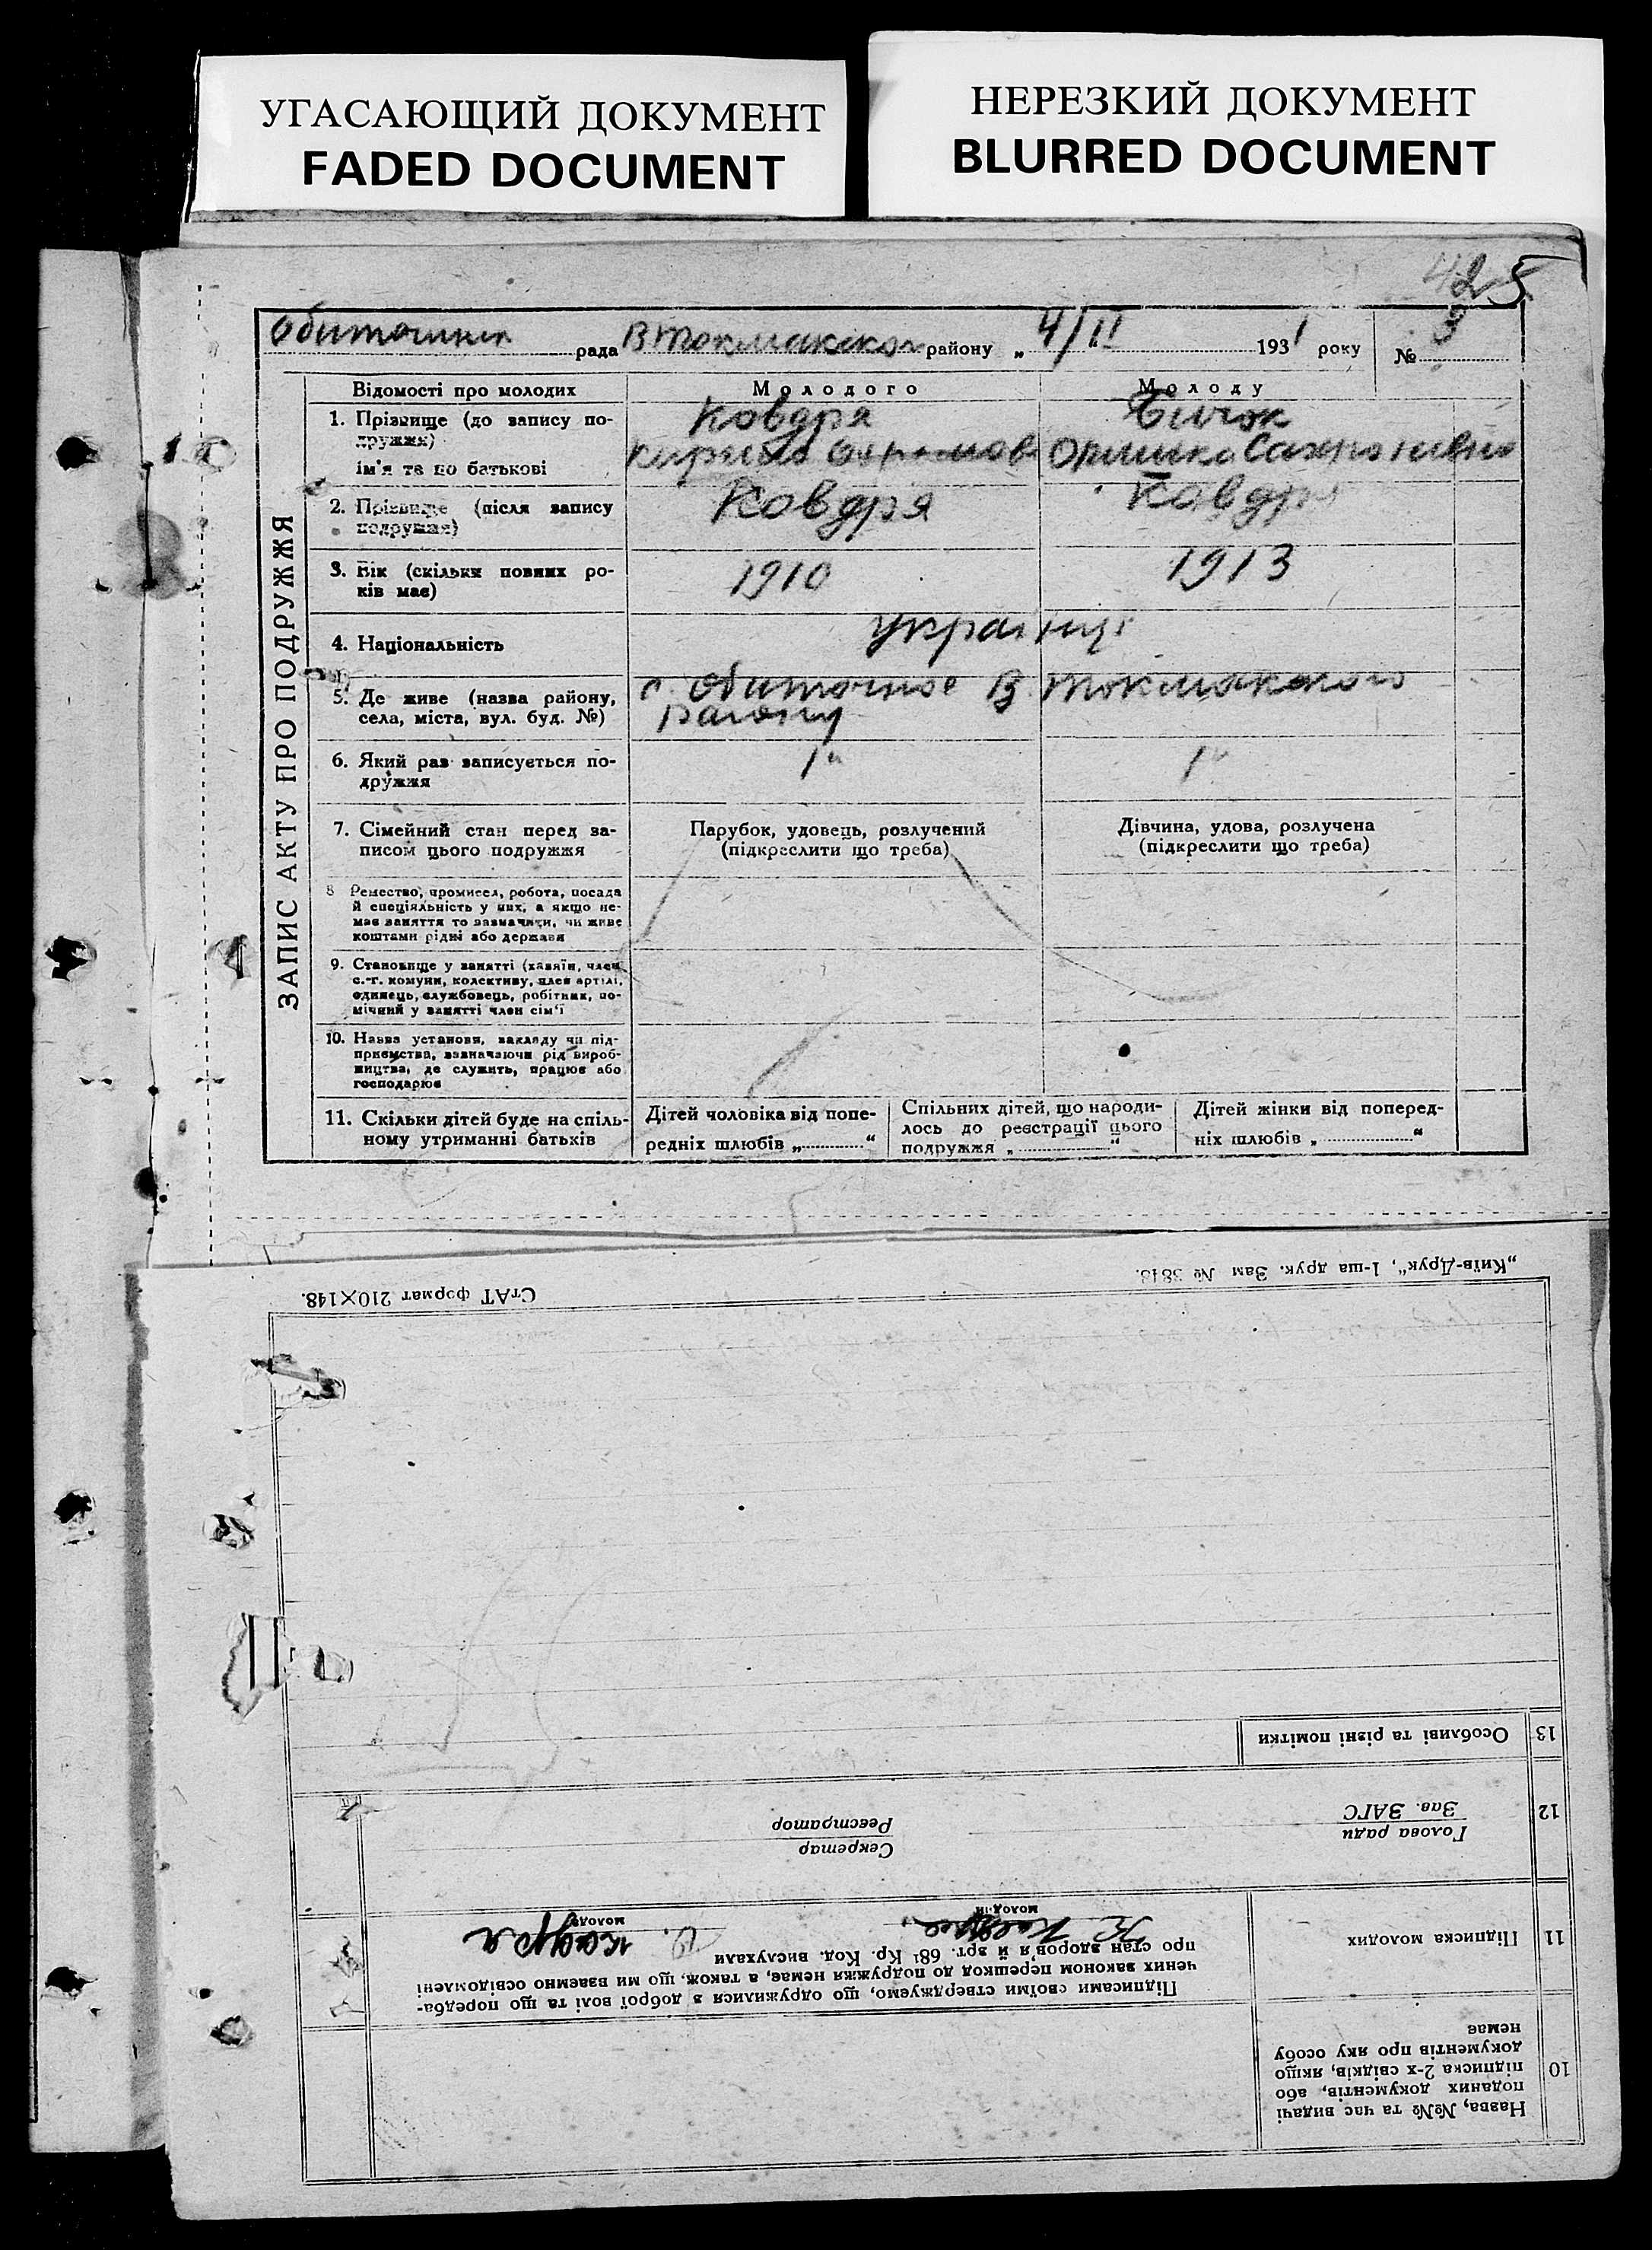 УГАСАЮЩИЙ ДОКУМЕНТ
FADED DOCUMENT
НЕРЕЗКИЙ ДОКУМЕНТ
BLURRED DOCUMENT
425
рада В Токмакского району „ 4/II 1931 року № 3
ЗАПИС АКТУ ПРО ПОДРУЖЖЯ
Відомості про молодих
Молодого
Молоду
1. Прізвище (до запису по-
дружжя)
ім'я та по батькові
Ковдря
Бичок
2. Прізвище (після запису
подружжя)
Ковдря
Ковдря
3. Вік (скільки повних ро-
ків має)
1910
1913
4. Національність
українці
5. Де живе (назва району,
села, міста, вул. буд. №)
с. Обиточное В. Токмакского
району
6. Який раз записується по-
дружжя
1й
1й
7. Сімейний стан перед за-
писом цього подружжя
Парубок, удовець, розлучений
(підкреслити що треба)
Дівчина, удова, розлучена
(підкреслити що треба)
8 Ремество, промисел, робота, посада
й спеціяльність у них, а якщо не-
має заняття то зазначити, чи живе
коштами рідні або держави
9. Становище у занятті (хазяїн, член
с.-г. комуни, колективу, член артілі,
одинець, службовець, робітник, по-
мічний у занятті член сім'ї
10. Назва установи, закладу чи під-
приємства, зазначаючи рід вироб-
ництва, де служить, працює або
господарює
11. Скільки дітей буде на спіль-
ному утриманні батьків
Дітей чоловіка від попе-
редніх шлюбів „ “
Спільних дітей, що народи-
лось до реєстрації цього
подружжя „ “
Дітей жінки від поперед-
ніх шлюбів „ “
„Київ-Друк“, 1-ша друк. Зам № 3848.
СтАТ формат 210×148.
10
Назва, №№ та час видачі
поданих документів, або
підписка 2-х свідків, якщо
документів про яку особу
немає
11
Підписка молодих
Підписами своїми стверджуємо, що одружилися з доброї волі та що передба-
чених законом перешкод до подружжя немає, а також, що ми взаємно освідомлені
про стан здоров'я й арт. 68¹ Кр. Код. вислухали
К Ковдря
молодий
О. Ковдря
молода
12
Голова ради
Зав. ЗАГС
Секретар
Реєстратор
13
Особливі та різні помітки